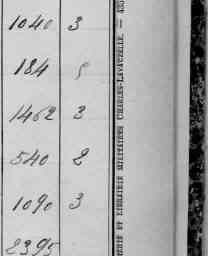 1040 3
184 5
1462 3
540 2
1090 3
8395
MERIE ET LIBRAIRIE MILITAIRES CHARLES-LAVAUZELLE. —